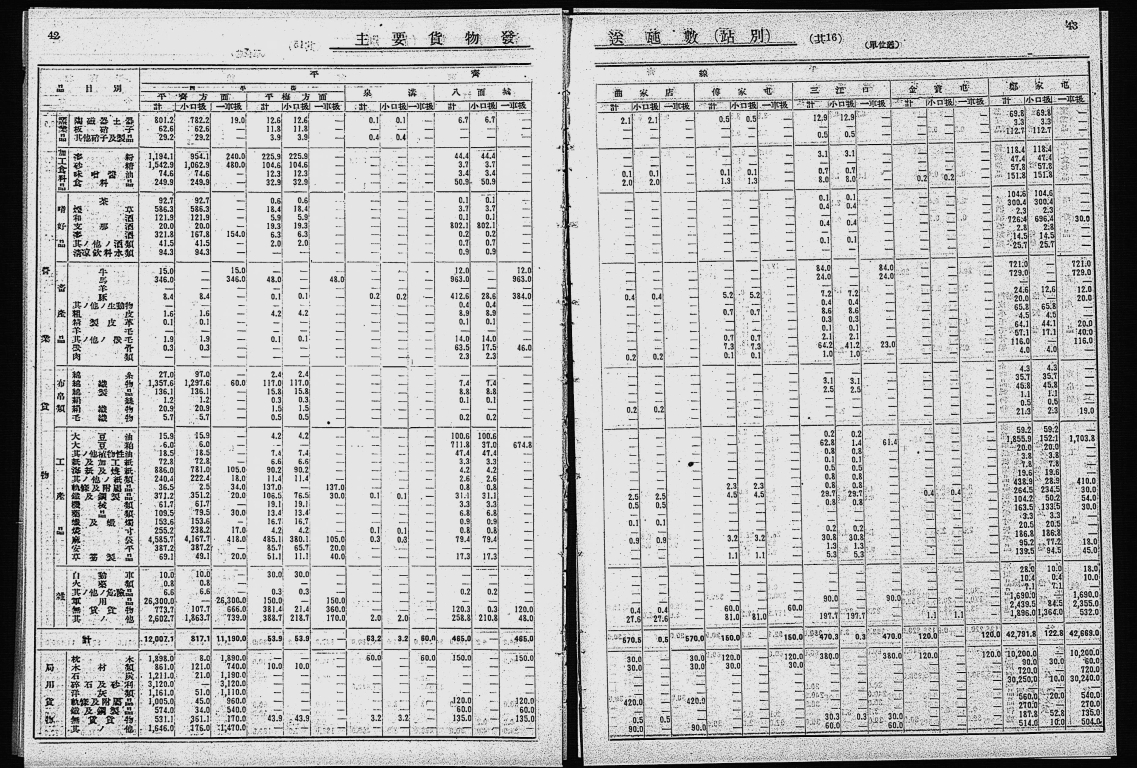 42
主要貨物發
平 齊
品目別 四平 泉溝 八面城
平齊方面 平梅方面
計 小口扱 一車扱 計 小口扱 一車扱 計 小口扱 一車扱 計 小口扱 一車扱
陶磁器土器 801.2 782.2 19.0 12.6 12.6 — 0.1 0.1 — 6.7 6.7 —
板硝子 62.6 62.6 — 11.8 11.8 — — — — — — —
其他硝子及製品 29.2 29.2 — 3.9 3.9 — 0.4 0.4 — — — —
加工食料品
麥粉 1,194.1 954.1 240.0 225.9 225.9 — — — — 44.4 44.4 —
砂糖 1,542.9 1,062.9 480.0 104.6 104.6 — — — — 3.7 3.7 —
味噌醬油 74.6 74.6 — 12.3 12.3 — — — — 3.4 3.4 —
食料品 249.9 249.9 — 32.9 32.9 — — — — 50.9 50.9 —
嗜好品
茶 92.7 92.7 — 0.6 0.6 — — — — 0.1 0.1 —
煙草 586.3 586.3 — 18.4 18.4 — — — — 3.7 3.7 —
和酒 121.9 121.9 — 5.9 5.9 — — — — 0.1 0.1 —
支那酒 20.0 20.0 — 19.3 19.3 — — — — 802.1 802.1 —
麥酒 321.8 167.8 154.0 6.3 6.3 — — — — 0.2 0.2 —
其ノ他ノ酒類 41.5 41.5 — 2.0 2.0 — — — — 0.7 0.7 —
淸涼飮料水類 94.3 94.3 — — — — — — — 0.9 0.9 —
營業貨物
畜產品
牛 15.0 — 15.0 — — — — — — 12.0 — 12.0
馬 346.0 — 346.0 48.0 — 48.0 — — — 963.0 — 963.0
羊 — — — — — — — — — — — —
豚 8.4 8.4 — 0.1 0.1 — 0.2 0.2 — 412.6 28.6 384.0
其ノ他ノ生動物 — — — — — — — — — 0.4 0.4 —
粗皮 1.6 1.6 — 4.2 4.2 — — — — 8.9 8.9 —
精製皮革 0.1 0.1 — — — — — — — 0.1 0.1 —
羊毛 — — — — — — — — — — — —
其ノ他ノ獸毛 1.9 1.9 — 0.1 0.1 — — — — 14.0 14.0 —
0.3 0.3 — — — — — — — 63.5 17.5 46.0
肉類 — — — — — — — — — 2.3 2.3 —
布帛類
綿糸 27.0 97.0 — 2.4 2.4 — — — — — — —
綿織物 1,357.6 1,297.6 60.0 117.0 117.0 — — — — 7.4 7.4 —
綿製品 136.1 136.1 — 15.8 15.8 — — — — 8.8 8.8 —
1.2 1.2 — 0.3 0.3 — — — — 0.1 0.1 —
絹織物 20.9 20.9 — 1.5 1.5 — — — — — — —
毛織物 5.7 5.7 — 0.5 0.5 — — — — 0.2 0.2 —
工產品
大豆油 15.9 15.9 — 4.2 4.2 — — — — 100.6 100.6 —
大豆粕 6.0 6.0 — — — — — — — 711.8 37.0 674.8
其ノ他植物性油 18.5 18.5 — 7.4 7.4 — — — — 47.4 47.4 —
紙及加工紙 72.8 72.8 — 6.6 6.6 — — — — 3.3 3.3 —
886.0 781.0 105.0 90.2 90.2 — — — — 4.2 4.2 —
其ノ他ノ紙類 240.4 222.4 18.0 11.4 11.4 — — — — 2.6 2.6 —
軌條及附屬品 36.5 2.5 34.0 137.0 — 137.0 — — — 0.8 0.8 —
鐵及鋼製品 371.2 351.2 20.0 106.5 76.5 30.0 0.1 0.1 — 31.1 31.1 —
機械類 61.7 61.7 — 19.1 19.1 — — — — 3.3 3.3 —
藥品類 109.5 79.5 30.0 13.4 13.4 — — — — 6.8 6.8 —
蠟及蠟燭 153.6 153.6 — 16.7 16.7 — — — — 0.9 0.9 —
燐寸 255.2 238.2 17.0 4.2 4.2 — 0.1 0.1 — 0.8 0.8 —
麻袋 4,585.7 4,167.7 418.0 485.1 380.1 105.0 0.3 0.3 — 79.4 79.4 —
安平 387.2 387.2 — 85.7 65.7 20.0 — — — — — —
草蓆製品 69.1 49.1 20.0 51.1 11.1 40.0 — — — 17.3 17.3 —
雜
自動車 10.0 10.0 — 30.0 30.0 — — — — — — —
火藥類 0.8 0.8 — — — — — — — — — —
其ノ他ノ危險品 6.6 6.6 — 0.3 0.3 — — — — 0.2 0.2 —
軍用品 26,300.0 — 26,300.0 150.0 — 150.0 — — — — — —
無賃貨物 773.7 107.7 666.0 381.4 21.4 360.0 — — — 120.3 0.3 120.0
其ノ他 2,602.7 1,863.7 739.0 388.7 218.7 170.0 2.0 2.0 — 258.8 210.8 48.0
計 12,007.1 817.1 11,190.0 53.9 53.9 — 63.2 3.2 60.0 465.0 — 465.0
局用貨物
枕木 1,898.0 8.0 1,890.0 — — — 60.0 — 60.0 150.0 — 150.0
木材類 861.0 121.0 740.0 10.0 10.0 — — — — — — —
石炭 1,211.0 21.0 1,190.0 — — — — — — — — —
碎石及砂利 3,120.0 — 3,120.0 — — — — — — — — —
洋灰類 1,161.0 51.0 1,110.0 — — — — — — — — —
軌條及附屬品 1,005.0 45.0 960.0 — — — — — — 120.0 — 120.0
鐵及鋼製品 574.0 34.0 540.0 — — — — — — 60.0 — 60.0
無賃貨物 531.1 361.1 170.0 43.9 43.9 — 3.2 3.2 — 135.0 — 135.0
其ノ他 1,646.0 176.0 1,470.0 — — — — — — — — —
43
送噸數(站別) (其16) (單位瓲)
線
曲家店 傅家屯 三江口 金寶屯 鄭家屯
計 小口扱 一車扱 計 小口扱 一車扱 計 小口扱 一車扱 計 小口扱 一車扱 計 小口扱 一車扱
2.1 2.1 — 0.5 0.5 — 12.9 12.9 — — — — 69.8 69.8 —
— — — — — — — — — — — — 3.3 3.3 —
— — — — — — 0.5 0.5 — — — — 112.7 112.7 —
— — — — — — 3.1 3.1 — — — — 118.4 118.4 —
— — — — — — — — — — — — 47.4 47.4 —
0.1 0.1 — 0.1 0.1 — 0.7 0.7 — — — — 57.8 57.8 —
2.0 2.0 — 1.3 1.3 — 8.0 8.0 — 0.2 0.2 — 151.8 151.8 —
— — — — — — 0.1 0.1 — — — — 104.6 104.6 —
— — — — — — 0.4 0.4 — — — — 300.4 300.4 —
— — — — — — — — — — — — 2.3 2.3 —
— — — — — — 0.4 0.4 — — — — 726.4 696.4 30.0
— — — — — — — — — — — — 2.8 2.8 —
— — — — — — 0.1 0.1 — — — — 14.5 14.5 —
— — — — — — — — — — — — 25.7 25.7 —
— — — — — — 84.0 — 84.0 — — — 721.0 — 721.0
— — — — — — 24.0 — 24.0 — — — 729.0 — 729.0
0.4 0.4 — 5.2 5.2 — 7.2 7.2 — — — — 24.6 12.6 12.0
— — — — — — 0.4 0.4 — — — — 20.0 20.0 —
— — — 0.7 0.7 — 8.6 8.6 — — — — 65.8 65.8 —
— — — — — — 0.3 0.3 — — — — 4.5 4.5 —
— — — — — — 0.1 0.1 — — — — 64.1 44.1 20.0
— — — 0.7 0.7 — 2.1 2.1 — — — — 57.1 17.1 40.0
— — — 7.3 7.3 — 64.2 41.2 23.0 — — — 116.0 — 116.0
0.2 0.2 — 0.1 0.1 — 1.0 1.0 — — — — 4.0 4.0 —
— — — — — — — — — — — — 4.3 4.3 —
— — — — — — 3.1 3.1 — — — — 35.7 35.7 —
— — — — — — 2.5 2.5 — — — — 45.8 45.8 —
— — — — — — — — — — — — 1.1 1.1 —
— — — — — — — — — — — — 0.5 0.5 —
0.2 0.2 — — — — — — — — — — 21.3 2.3 19.0
— — — — — — 0.2 0.2 — — — — 59.2 59.2 —
— — — — — — 62.8 1.4 61.4 — — — 1,855.9 152.1 1,703.8
— — — — — — 0.8 0.8 — — — — 20.0 20.0 —
— — — — — — 0.1 0.1 — — — — 3.8 3.8 —
— — — — — — 0.5 0.5 — — — — 7.8 7.8 —
— — — — — — 0.8 0.8 — — — — 19.6 19.6 —
— — — 2.3 2.3 — 0.8 0.8 — — — — 438.9 28.9 410.0
2.5 2.5 — 4.5 4.5 — 29.7 29.7 — 0.4 0.4 — 264.5 234.5 30.0
0.5 0.5 — — — — 0.8 0.8 — — — — 104.2 50.2 54.0
— — — — — — — — — — — — 163.5 133.5 30.0
0.1 0.1 — — — — — — — — — — 3.3 3.3 —
— — — — — — 0.2 0.2 — — — — 20.5 20.5 —
0.9 0.9 — 3.2 3.2 — 30.8 30.8 — — — — 186.8 186.8 —
— — — — — — 1.3 1.3 — — — — 95.2 77.2 18.0
— — — 1.1 1.1 — 5.3 5.3 — — — — 139.5 94.5 45.0
— — — — — — — — — — — — 28.0 10.0 18.0
— — — — — — — — — — — — 10.4 0.4 10.0
— — — — — — — — — — — — 7.1 7.1 —
— — — — — — 90.0 — 90.0 — — — 1,690.0 — 1,690.0
0.4 0.4 — 60.0 — 60.0 — — — — — — 2,439.5 84.5 2,355.0
27.6 27.6 — 81.0 81.0 — 197.7 197.7 — 1.1 1.1 — 1,896.0 1,364.0 532.0
570.5 0.5 570.0 160.0 — 160.0 470.3 0.3 470.0 120.0 — 120.0 42,791.8 122.8 42,669.0
30.0 — 30.0 120.0 — 120.0 380.0 — 380.0 120.0 — 120.0 10,200.0 — 10,200.0
30.0 — 30.0 30.0 — 30.0 — — — — — — 90.0 30.0 60.0
— — — — — — — — — — — — 720.0 — 720.0
— — — — — — — — — — — — 30,250.0 10.0 30,240.0
420.0 — 420.0 — — — — — — — — — 560.0 20.0 540.0
— — — — — — — — — — — — 270.0 — 270.0
0.5 0.5 — — — — 30.3 0.3 30.0 — — — 187.8 52.8 135.0
90.0 — 90.0 — — — 60.0 — 60.0 — — — 514.0 10.0 504.0